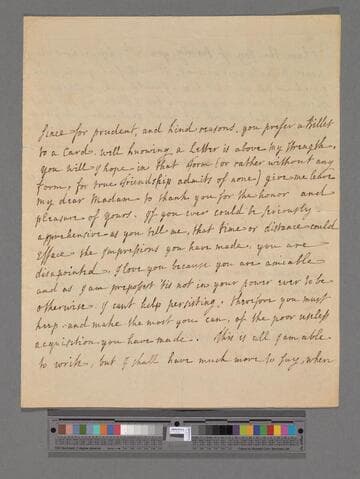 Since for prudent, and kind reasons, you prefer a Billet
to a Card, well knowing a Letter is above my strength,
you will I hope in that Form (or rather without any
form, for true friendship admits of none) give me leave
my dear Madam to thank you for the honor and
pleasure of yours. If you ever could be seriously
apprehensive as you tell me, that time or distance could
Efface the impressions you have made, you are
disapointed, I love you because you are amiable
and as I am prepossest tis not in your power ever to be
otherwise I cant help persisting, therefore you must
keep and make the most you can, of the poor useless
acquisition you have made. This is all I am able
to write, but I shall have much more to say, when